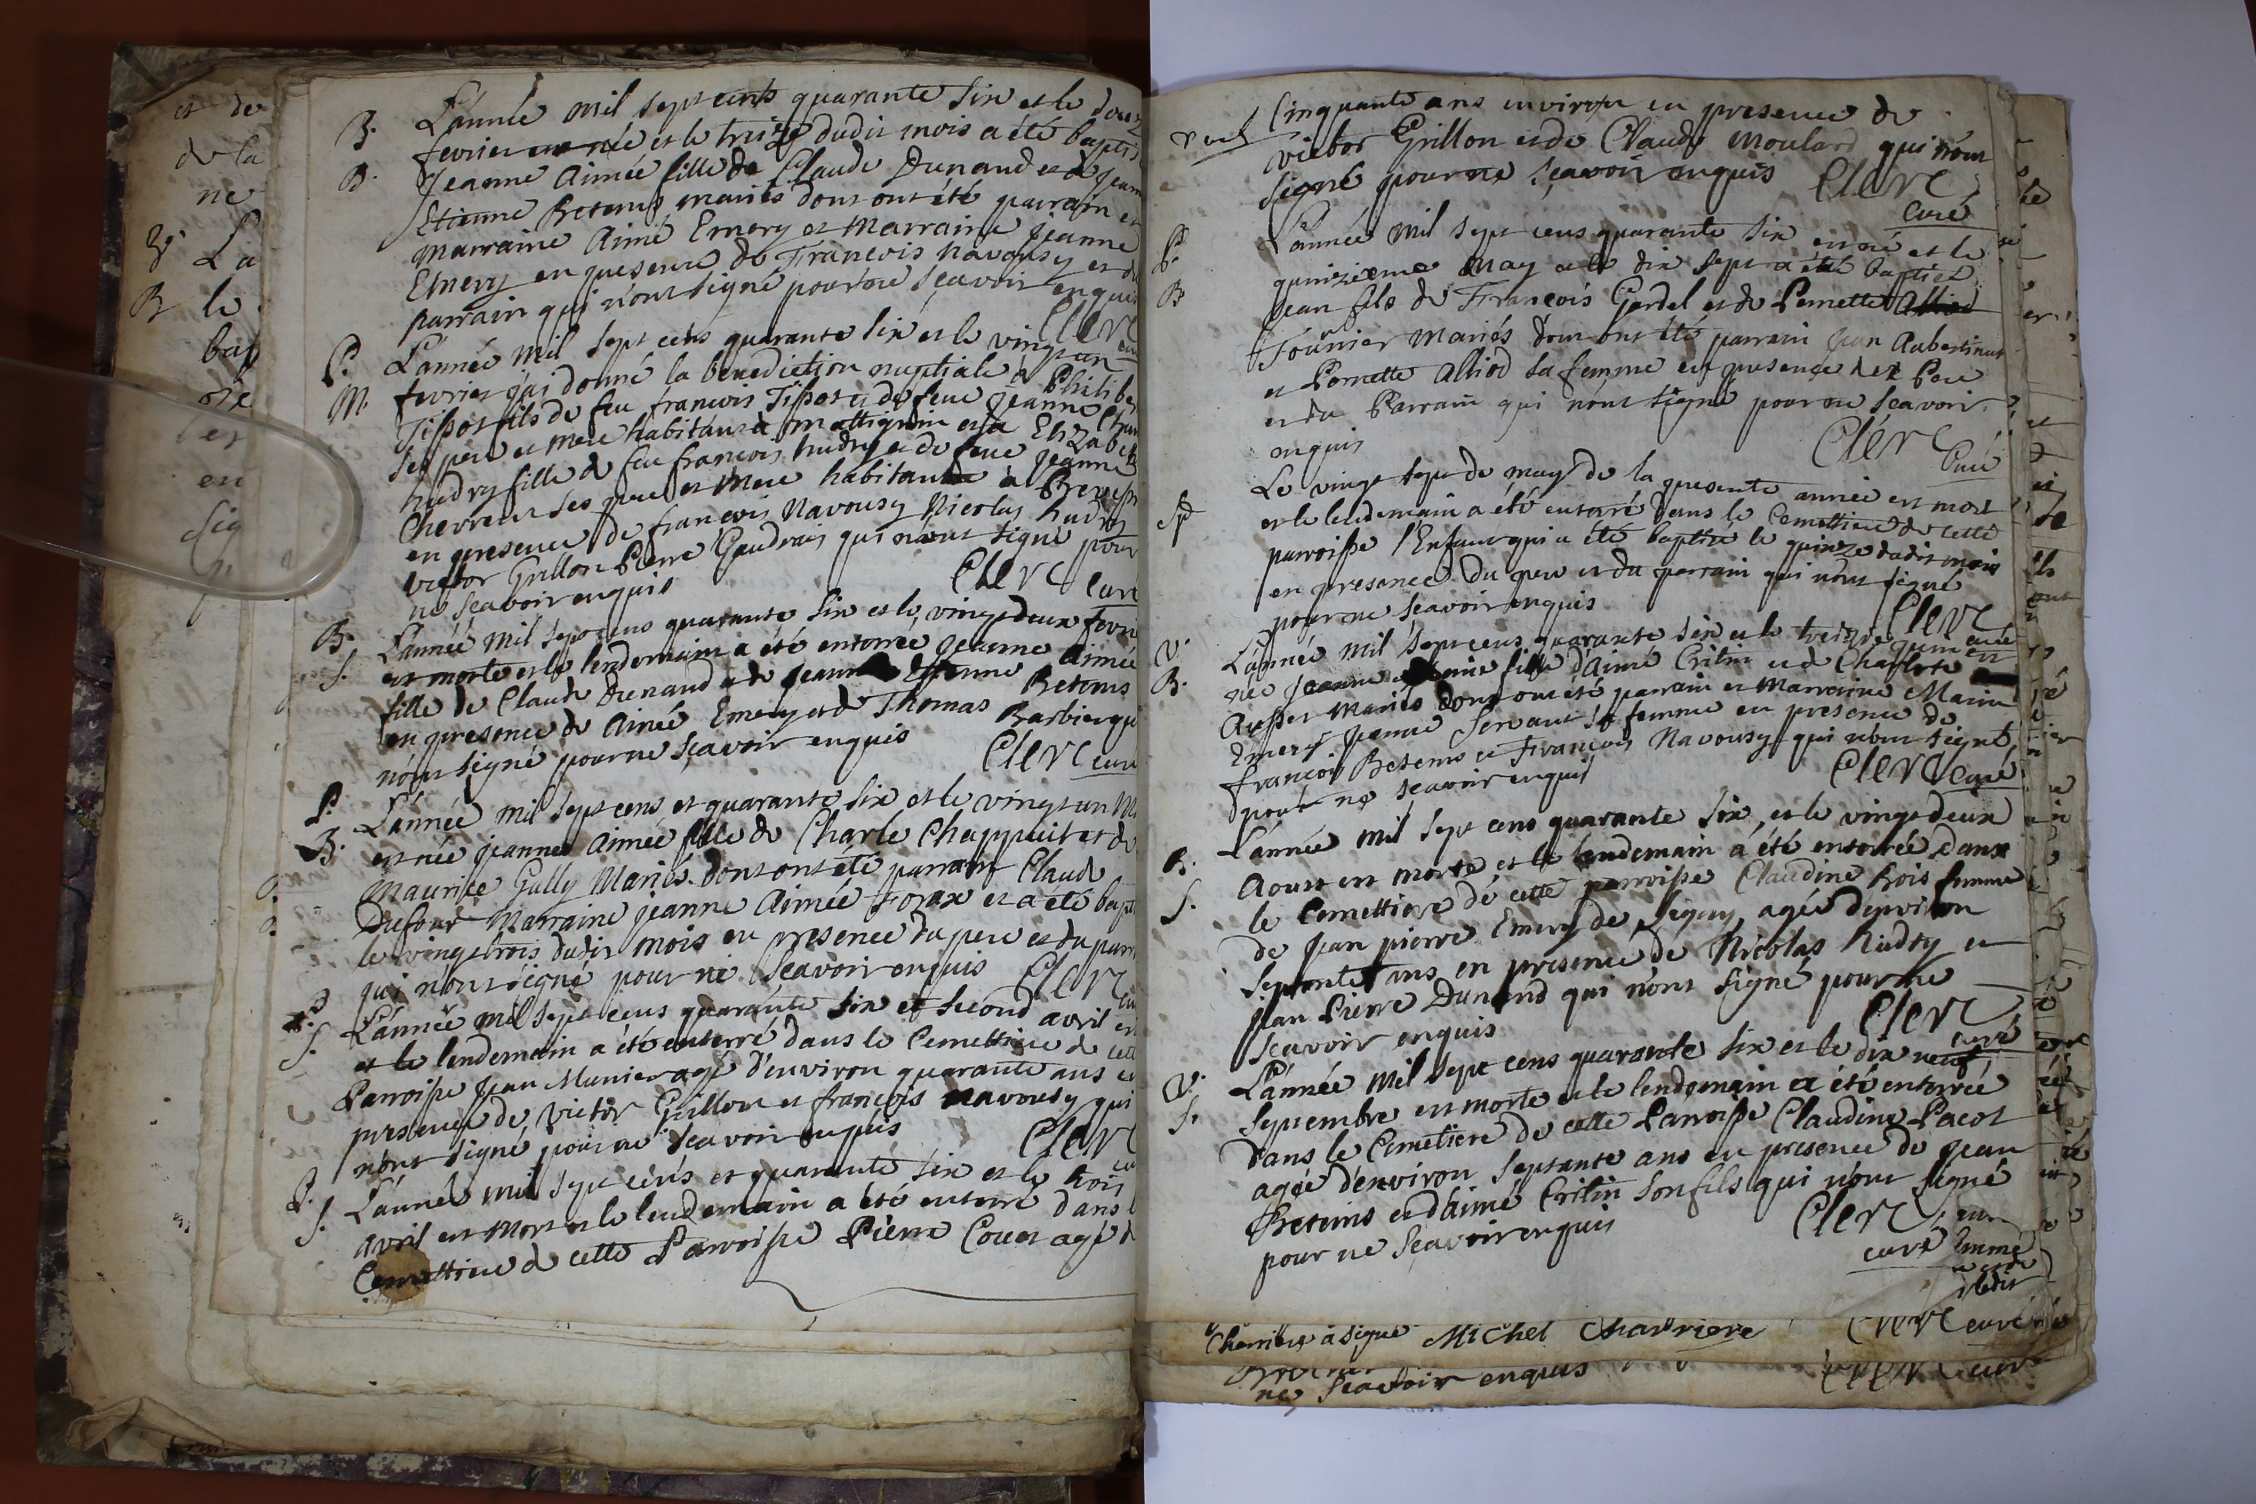 B. L'année mil sept cents quarante Six et le douz
fevrier née et le treize dudit mois a été bapti
B. Jeanne Aimée fille de Claude Dunand et de Jean
Etienne Betems mariés dont ont été parrain et
Marraine Aimé Emery et Marraine Jeanne
Emery en presence de Francois Navousy et du
parrain qui n'ont Signé pour ne Sçavoir enquis
Clerc
P. L'année mil sept cens quarante Six et le vingt un
M. fevrier j'ai donné la benediction nuptiale à Philibe
Tissot fils de feu francois Tissot et de feue Jeanne
Ses pere et mere habitans à et à Elizabet
hudry fille de feu francois hudry et de feue Jeanne
Chevreur Ses pere et mere habitans à
en presence de francois Navousy Nicolas hudry
Victor Grillon Pierre Gaudrais qui n'ont Signé pour
ne Sçavoir enquis Clerc Curé
B. L'année mil Sept cens quarante Six et le vingt deux fevri
S. est morte et le lendemain a été enterrée Jeanne Aimée
fille de Claude Dunand et de Jeanne Etienne Betems
en presence de Aimé Emery et de Thomas Barbier qui
n'ont Signé pour ne Sçavoir enquis Clerc curé
P. L'année mil Sept cens et quarante Six et le vingt un M
B. est née Jeanne Aimée fille de Charle Chappuit et de
Maurise Gully Mariés dont ont été parrain Claude
Dufour Marraine Jeanne Aimée Forax et a été bapt
le vingt trois dudit mois en presence du pere et du parr
qui n'ont Signé pour ne Sçavoir enquis Clerc
P. L'année mil Sept cens quarante Six et Second avril
S. et le lendemain a été enterré dans le Cemettiere de cette
Parroisse Jean Munier agé d'environ quarante ans en
presence de Victor Grillon et francois Navousy qui
n'ont Signé pour ne Sçavoir enquis Clerc
P. L'année mil Sept cens et quarante Six et le trois
S. avril est Mort et le lendemain a été enterré dans l
Cemettiere de cette Parroisse Pierre Couet agé d
Cinquante ans environ en presence de
Victor Grillon et de Claude Moulard qui n'ont
Signé pour ne Sçavoir enquis Clerc
Curé
P. L'année mil Sept cens quarante Six est né et le
B quinzieme May et le dix Sept a été baptisé
Jean fils de François Gerdel et de Pernette
Fournier Mariés dont ont été parrain Jean
et Pernette Alliod Sa femme en presence du Pere
et du Parrain qui n'ont Signé pour ne Sçavoir
enquis Clerc
Curé
Le vingt Sept de may de la presente année est mort
et le lendemain a été enterré dans le Cemettiere de cette
parroisse l'Enfant qui a été baptisé le quinze dudit mois
en presance du pere et du parrain qui n'ont Signé
pour ne Sçavoir enquis Clerc
curé
V. L'année mil Sept cens quarante Six et le treize Juin est
B. née Jeanne fille d'Aimé Critin et de Charlote
Mariés dont ont été parrain et Marraine Marin
Emery Jeanne Servant Sa femme en presence de
francois Betems et François Navousy qui n'ont Signé
pour ne Sçavoir enquis Clerc Curé
B. L'année mil Sept cens quarante Six, et le vingt deux
Aoust est morte, et le lendemain a été enterrée dans
S. le Cemettiere de cette parroisse Claudine Bois femme
de Jean pierre Emery de Segny, agée d'environ
Septante ans en presence de Nicolas hudry et
Jean Pierre Dunand qui n'ont Signé pour ne
Sçavoir enquis Clerc
curé
V. L'année Mil Sept cens quarante Six et le dix neuf
S. Septembre est morte et le lendemain a été enterrée
dans le Cimetiere de cette Parroisse Claudine Pacot
agée d'environ Septante ans en presence de Jean
Betems et d'aimé Critin Son fils qui n'ont Signé
pour ne Sçavoir enquis Clerc
curé
à Signé Michel Charriere Clerc curé
ne Sçavoir enquis Clerc curé